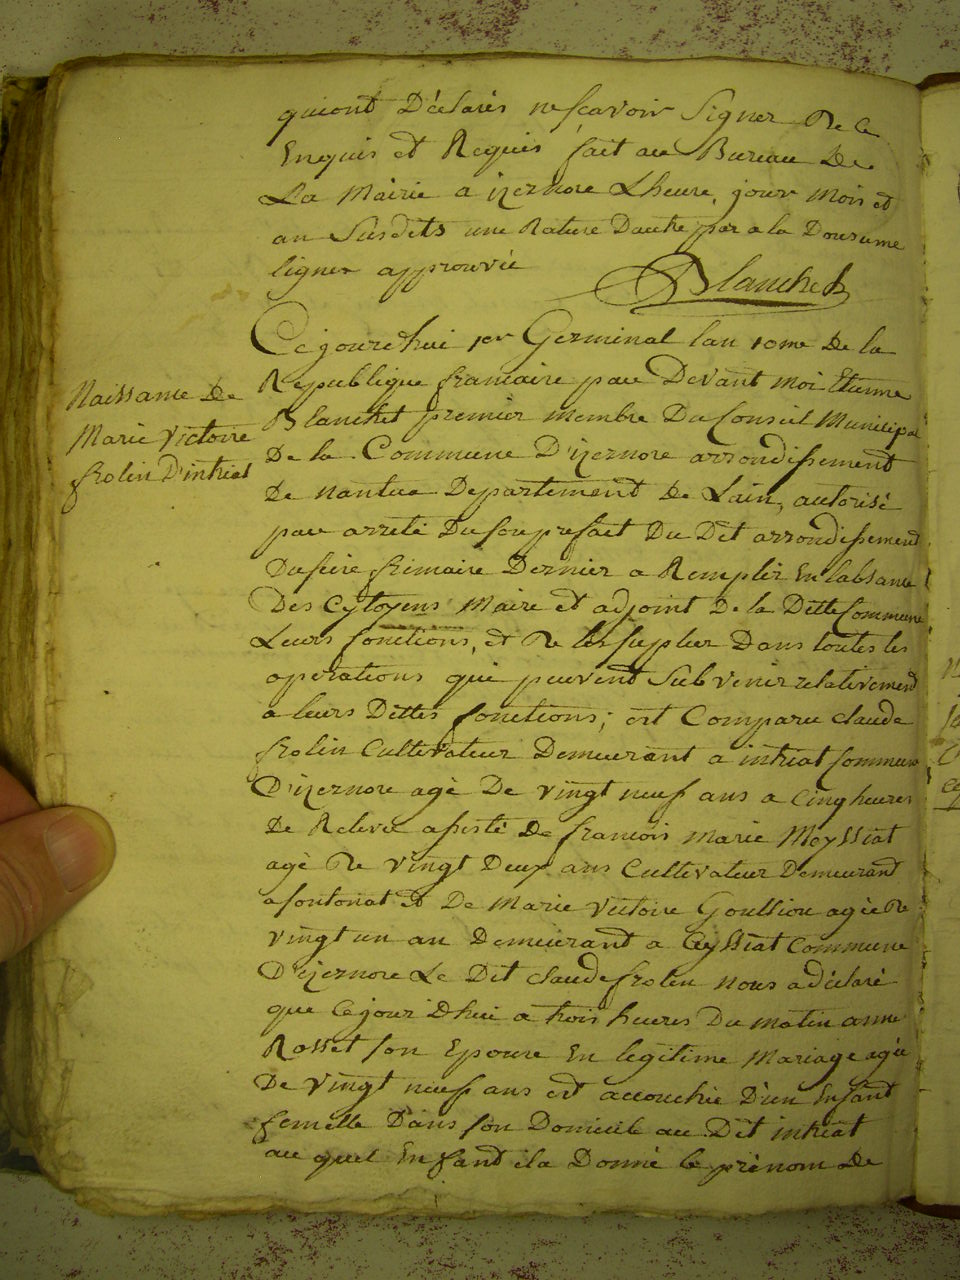 quiont Déclarés nesçavoir Signer De ce
Enquis et Requis fait au Bureau De
La Mairie a izernore Lheure, jour Mois et
an Susdits une Rature Dautre par a la Douzume
ligner approuvée
Blanchet
Naissance De
Marie Victoire
frolin D'intriat
Ce jourdhui 1er Germinal lan 10me De la
Republique francaise par Devant moi Etienne
Blanchet premier membre Du Conseil Municipal
De la Commune D'izernore arrondissement
De nantua Departement De Lain, autorisé
par arreté Dusouprefait Du Dit arrondissement
Duseire frimaire Dernier a Remplir En labsance
Des Cytoyens Maire et adjoint De la Ditte Commune
Leurs fonctions, et De les supleer Dans toutes les
operations qui peuvent Subvenir relativement
a leurs Dittes fonctions; est Comparu claude
frolin Cultivateur Demeurant a intriat Commune
D'izernore agé De vingt neuf ans a Cinq heures
De Relevée assisté De francois Marie Moyssiat
agé De vingt Deux ans Cultivateur Demeurant
asontonat et De Marie Victoire Goussion agée De
vingt un an Demeurant a Ceyssiat Commune
D'izernore Le Dit claude frolin nous adéclaré
que Cejour Dhui a trois heures Du matin anne
Rosset son Epouse En legitime Mariage agée
De vingt neuf ans est accouchée D'un Enfant
femelle Dans son Domicile au Dit intriat
au quel Enfant ila Donné le prénom De